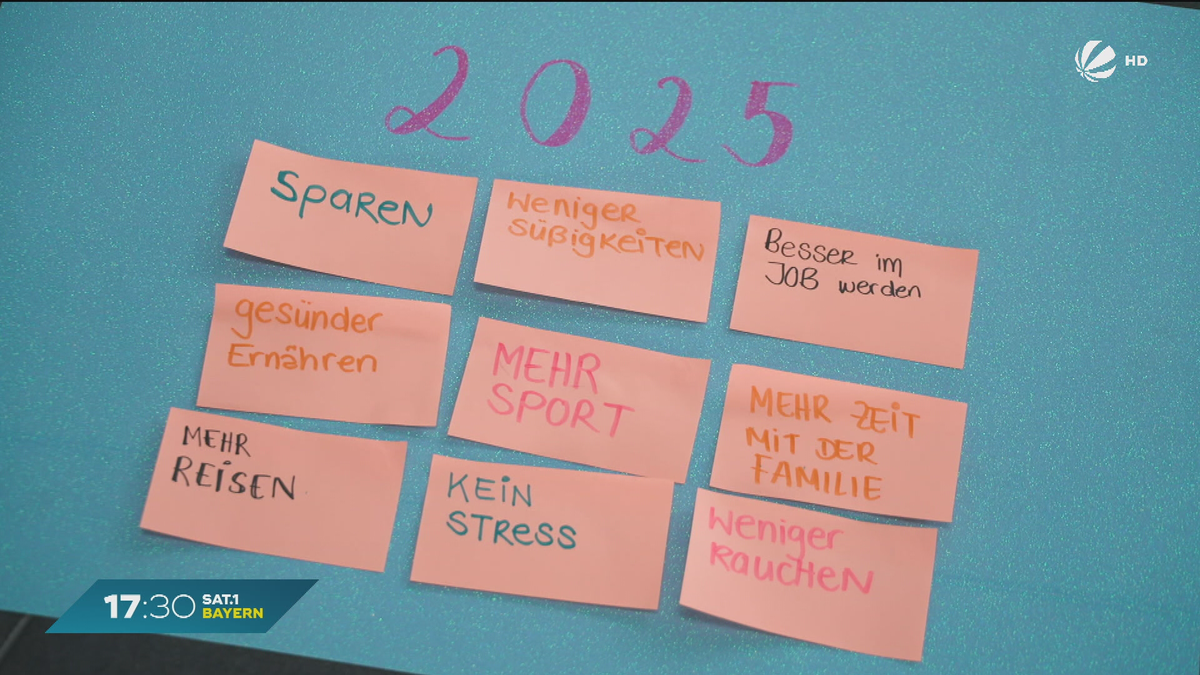 2025
HD
SPAREN
Weniger
SÜßigkEiTEN
BESSER im
JOB werden
gesünder
Ernähren
MEHR
SPORT
MEHR ZEiT
MiT DER
FAMILIE
MEHR
REiSEN
KEiN
STReSS
Weniger
RauCHEN
17:30 SAT.1
BAYERN